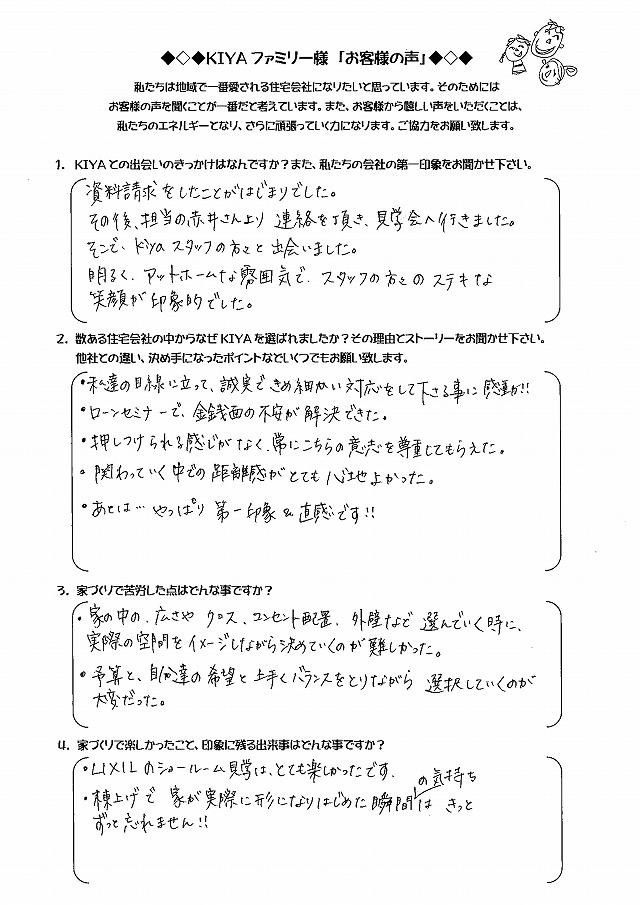 ◆◇◆KIYAファミリー様「お客様の声」◆◇◆
私たちは地域で一番愛される住宅会社になりたいと思っています。そのためには
お客様の声を聞くことが一番だと考えています。また、お客様から嬉しい声をいただくことは、
私たちのエネルギーとなり、さらに頑張っていく力になります。ご協力をお願い致します。
1. KIYAとの出会いのきっかけはなんですか?また、私たちの会社の第一印象をお聞かせ下さい。
資料請求をしたことがはじまりでした。
その後、担当の赤井さんより 連絡を頂き、見学会へ行きました。
そこで、Kiyaスタッフの方々と出会いました。
明るく、アットホームな雰囲気で、スタッフの方々のステキな
笑顔が印象的でした。
2. 数ある住宅会社の中からなぜKIYAを選ばれましたか?その理由とストーリーをお聞かせ下さい。
他社との違い、決め手になったポイントなどいくつでもお願い致します。
・私達の目線に立って、誠実できめ細かい対応をして下さる事に感謝!!
・ローンセミナーで、金銭面の不安が解決できた。
・押しつけられる感じがなく、常にこちらの意志を尊重してもらえた。
・関わっていく中での距離感がとても心地よかった。
・あとは…やっぱり 第一印象&直感です!!
3. 家づくりで苦労した点はどんな事ですか?
・家の中の、広さや クロス、コンセント配置、外壁など 選んでいく時に、
実際の空間をイメージしながら決めていくのが難しかった。
・予算と、自分達の希望と上手くバランスをとりながら 選択していくのが
大変だった。
4. 家づくりで楽しかったこと、印象に残る出来事はどんな事ですか?
・LIXILのショールーム見学は、とても楽しかったです。
・棟上げで 家が実際に形になりはじめた瞬間の気持ちは きっと
ずっと忘れません!!